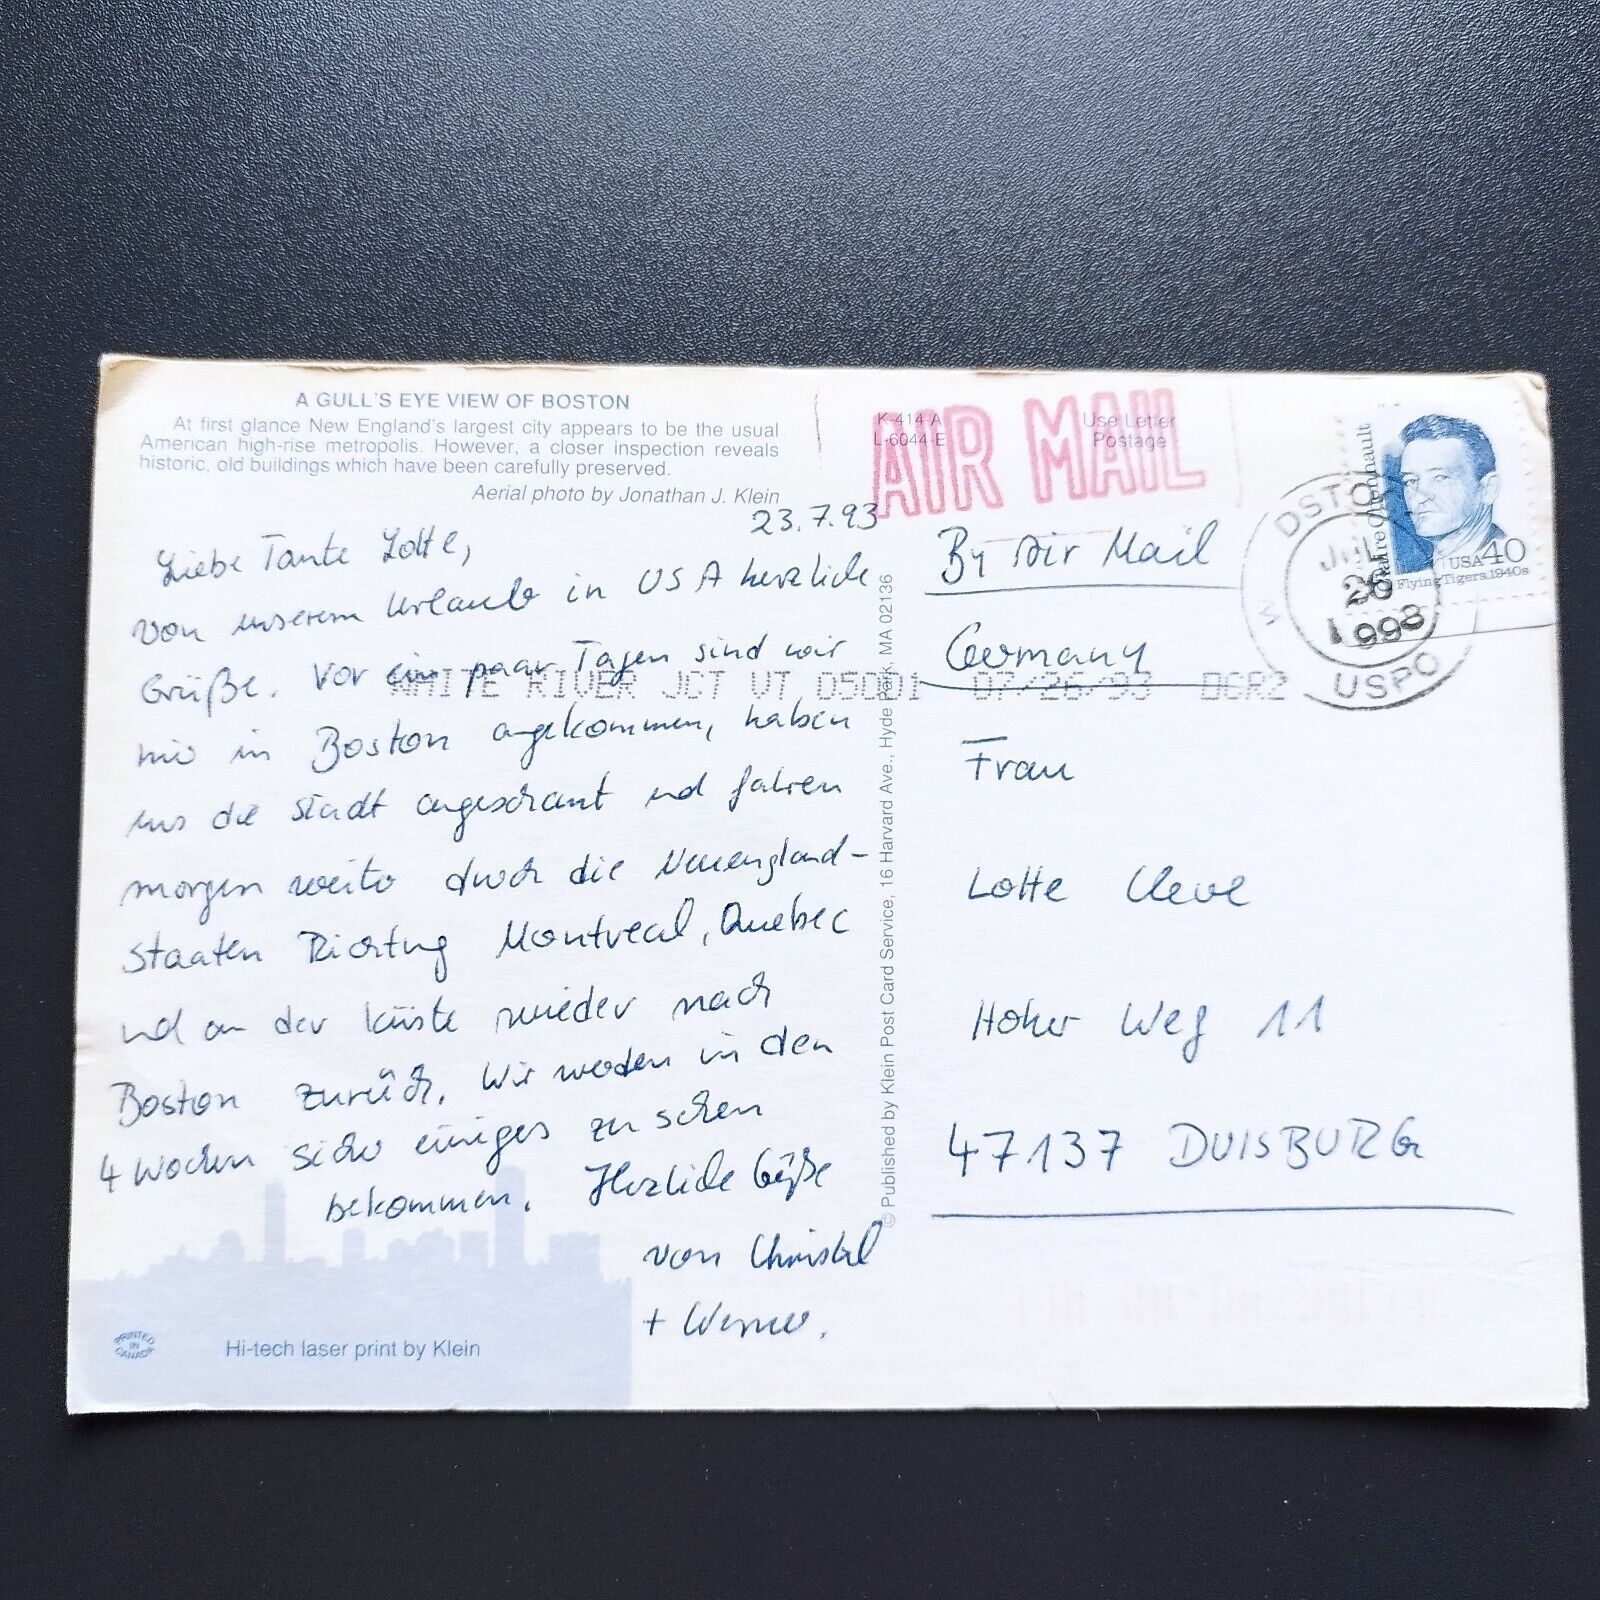 A GULL'S EYE VIEW OF BOSTON
At first glance New England's largest city appears to be the usual
American high-rise metropolis. However, a closer inspection reveals
historic, old buildings which have been carefully preserved.
Aerial photo by Jonathan J. Klein
23.7.93
Liebe Tante Lotte,
von unserem Urlaub in USA herzliche
Grüße. Vor ein paar Tagen sind wir
hier in Boston angekommen, haben
uns die Stadt angeschaut und fahren
morgen weiter durch die Neuengland-
staaten Richtung Montreal, Quebec
und an der Küste wieder nach
Boston zurück. Wir werden in den
4 Wochen sicher einiges zu sehen
bekommen. Herzliche Grüße
von Christel
+ Werner.
PRINTED IN CANADA
Hi-tech laser print by Klein
© Published by Klein Post Card Service, 16 Harvard Ave., Hyde Park, MA 02136
K-414-A
L-6044-E
Use Letter
Postage
AIR MAIL
Claire Chennault
USA 40
Flying Tigers, 1940s
JUL
26
USPO
WHITE RIVER JCT VT 05001 07/26/93 BCR2
By Air Mail
Germany
Frau
Lotte Cleve
Hoher Weg 11
47137 DUISBURG